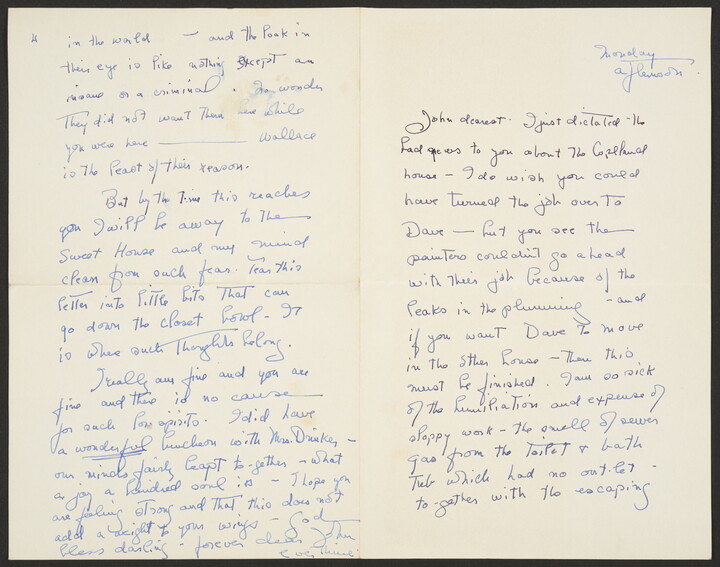 4
in the world — and the look in
their eye is like nothing except an
insane or a criminal. wonder
They did not want them here while
you were here —— Wallace
is the least of their reason.
But by the time this reaches
you I will be away to the
Sweet House and my mind
clean from such fear. Tear this
letter into little bits that can
go down the closet bowl - It
is where such thoughts belong.
I really am fine and you are
fine and there is no cause
for such low spirits. I did have
a wonderful luncheon with Mrs. Drinker -
our minds fairly leapt to-gether - what
a joy a kindred soul is - I hope you
are feeling strong and that this does not
add a weight to your wings - God
bless darling - forever dear John
Monday
afternoon.
John dearest - I just dictated - the
bad news to you about the Copeland
house - I do wish you could
have turned the job over to
Dave — but you see the
painters couldn't go ahead
with their job because of the
leaks in the plumming - and
if you want Dave to move
in the other house - then this
must be finished. I am so sick
of the humiliation and expense of
sloppy work - the smell of sewer
gas from the toilet & bath
tub which had no out-let -
to-gether with the escaping